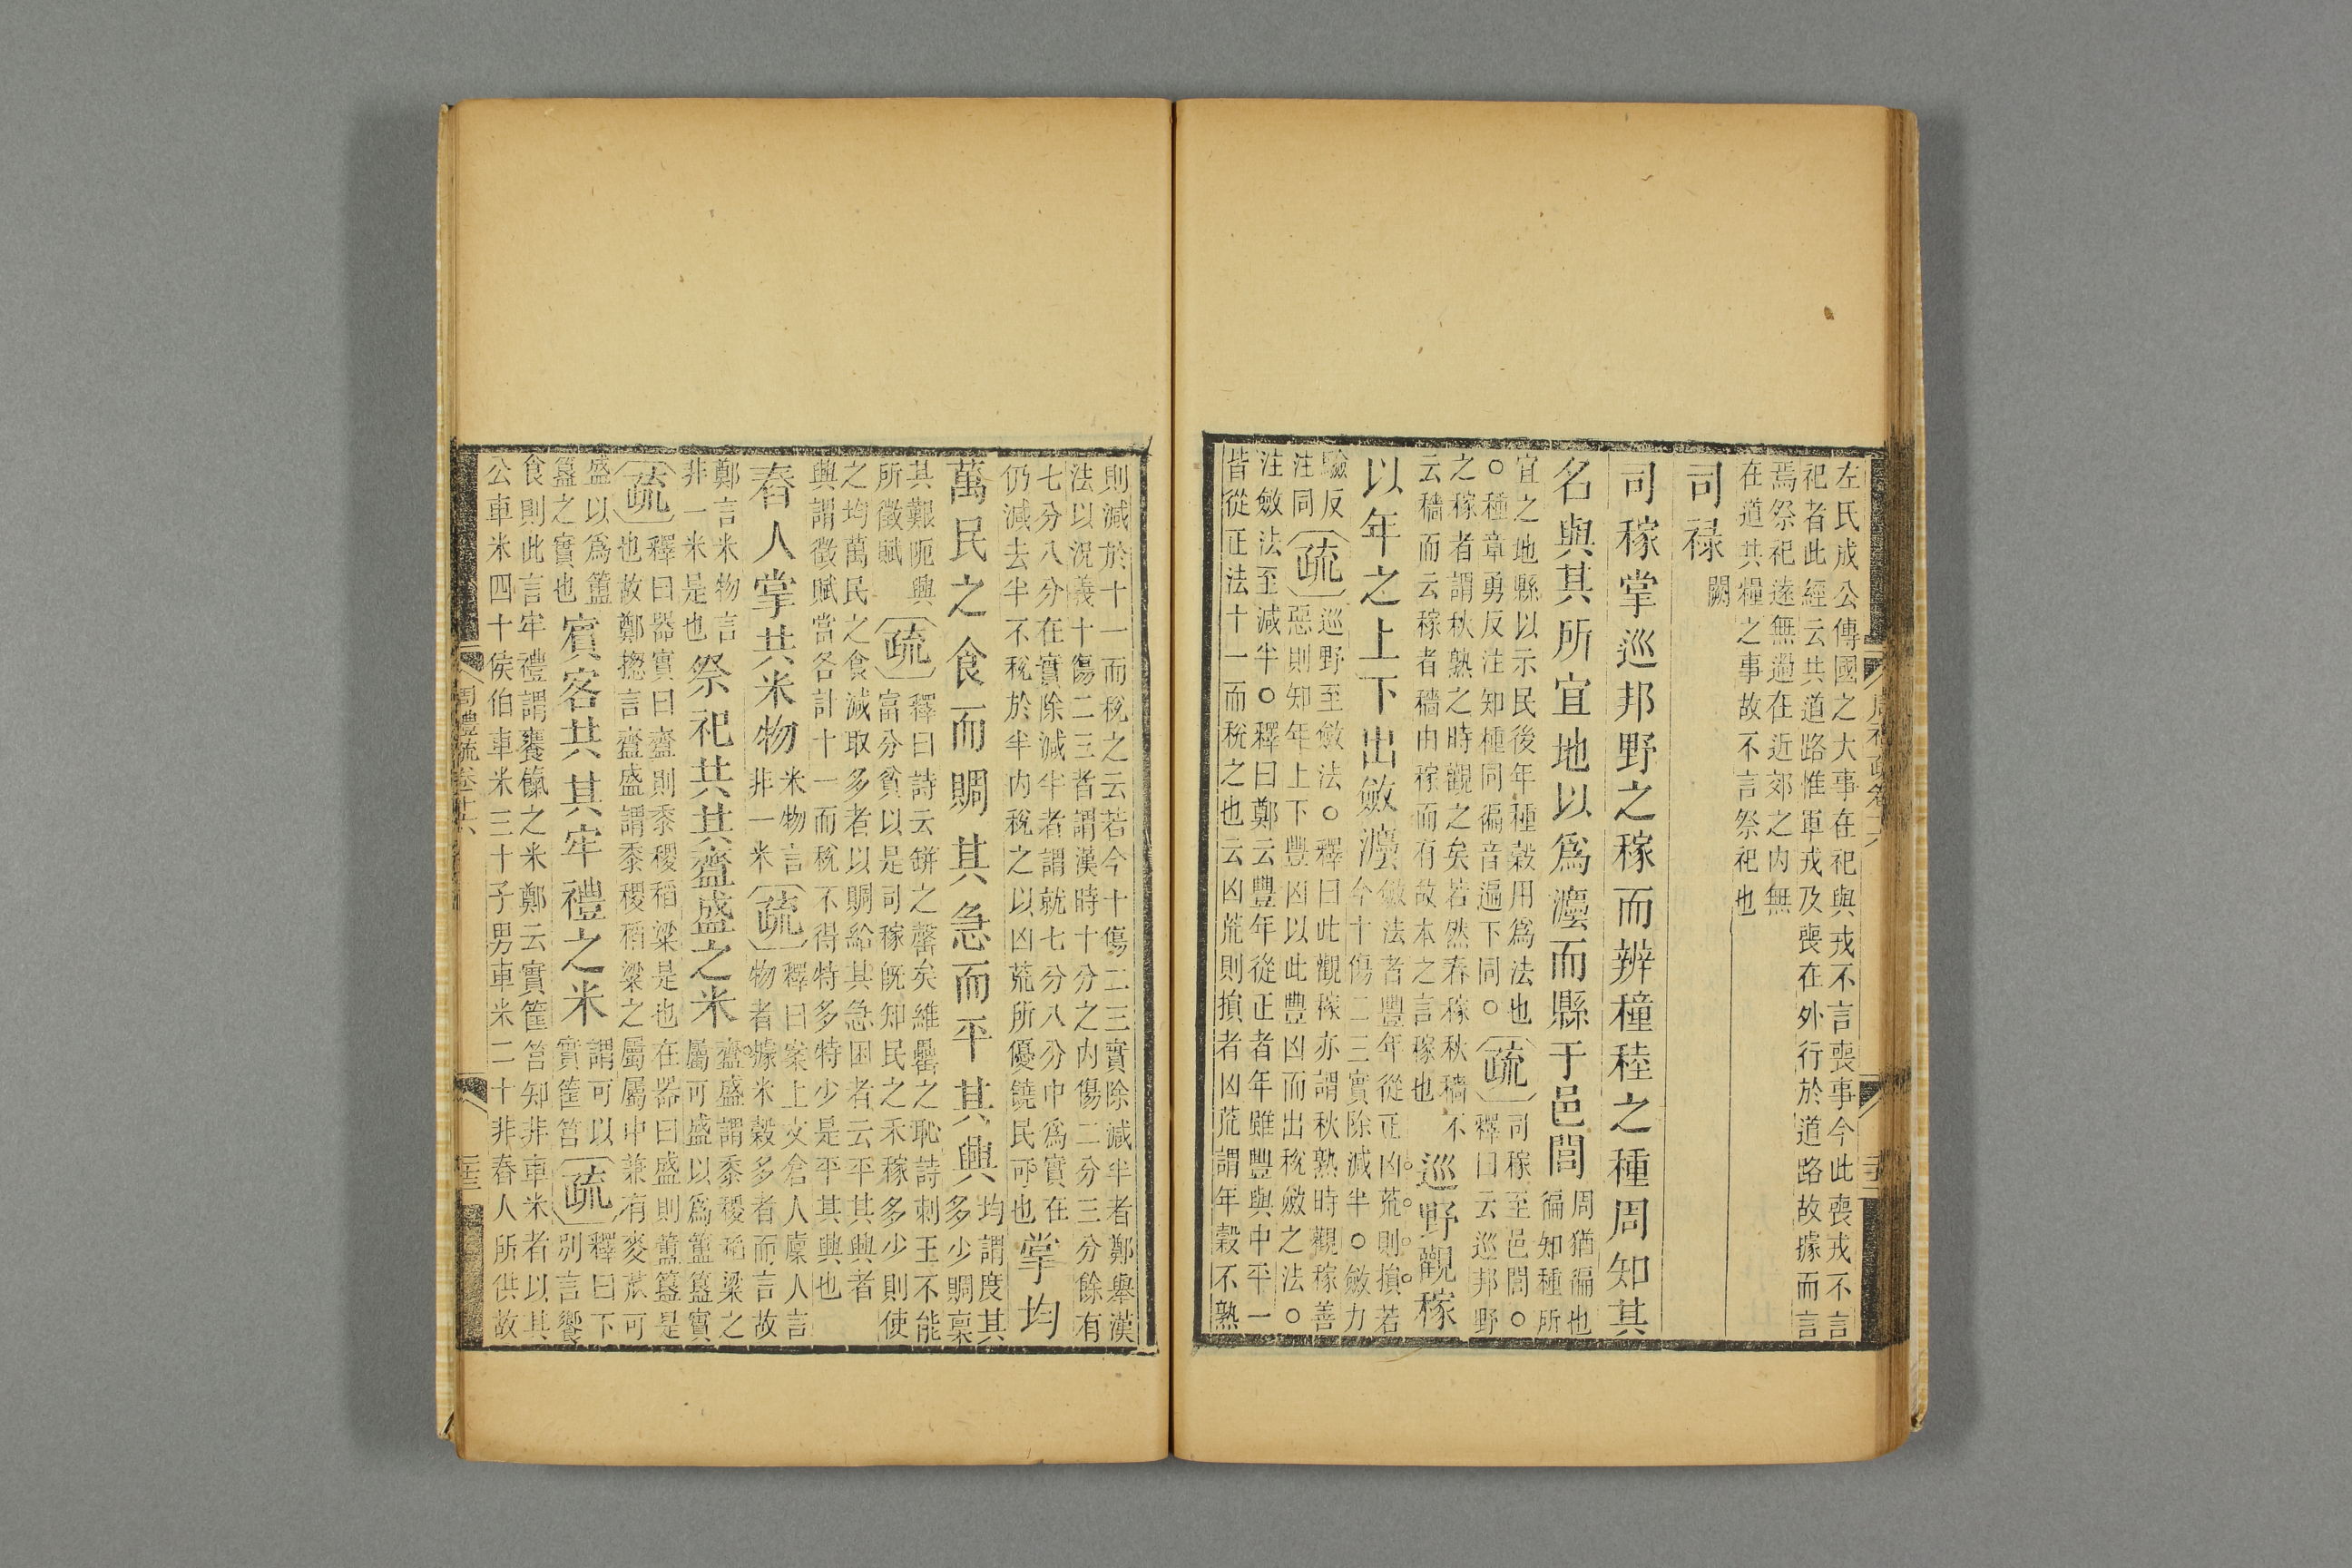 左氏成公傳國之大事在祀與戎不言喪事今此喪戎不言
祀者此經云共道路惟軍戎及喪在外行於道路故據而言
焉祭祀遂無過在近郊之內無
在道共糧之事故不言祭祀也
司祿闕
司稼掌巡邦野之稼而辨穜稑之種周知其
名與其所宜地以爲灋而縣于邑閭
周猶徧也
徧知種所
宜之地縣以示民後年種穀用爲法也
○種章勇反注知種同徧音遍下同○
疏
司稼至邑閭○
釋曰云巡邦野
之稼者謂秋熟之時觀之矣若然春稼秋穡不
云穡而云稼者穡由稼而有故本之言稼也
巡野觀稼
以年之上下出斂灋
斂法者豐年從正凶荒則損若
今十傷二三實除減半○斂力
驗反
注同
疏
巡野至斂法○釋曰此觀稼亦謂秋熟時觀稼善
惡則知年上下豐凶以此豐凶而出稅斂之法○
注斂法至減半○釋曰鄭云豐年從正者年雖豐與中平一
皆從正法十一而稅之也云凶荒則損者凶荒謂年穀不熟
則減於十一而稅之云若今十傷二三實除減半者鄭舉漢
法以況義十傷二三者謂漢時十分之內傷二分三分餘有
七分八分在實除減半者謂就七分八分中爲實在
仍減去半不稅於半內稅之以凶荒所優饒民可也
掌均
萬民之食而賙其急而平其興
均謂度其
多少賙稟
其艱阨興
所徵賦
疏
釋曰詩云缾之罄矣維罍之恥詩刺王不能
富分貧以是司稼旣知民之禾稼多少則使
之均萬民之食減取多者以賙給其急困者云平其興者
興謂徵賦當各計十一而稅不得特多特少是平其興也
舂人掌共米物
米物言
非一米
疏
釋曰案上文倉人廩人言
物者據米穀多者而言故
鄭言米物言
非一米是也
祭祀共其齍盛之米
齍盛謂黍稷稻粱之
屬可盛以爲簠簋實
疏
釋曰器實曰齍則黍稷稻粱是也在器曰盛則簠簋是
也故鄭揔言齍盛謂黍稷稻粱之屬屬中兼有麥苽可
盛以爲簠
簋之實也
賓客共其牢禮之米
謂可以
實筐筥
疏
釋曰下
別言饗
食則此言牢禮謂饔餼之米鄭云實筐筥知非車米者以其
公車米四十侯伯車米三十子男車米二十非舂人所供故
周禮疏卷十六